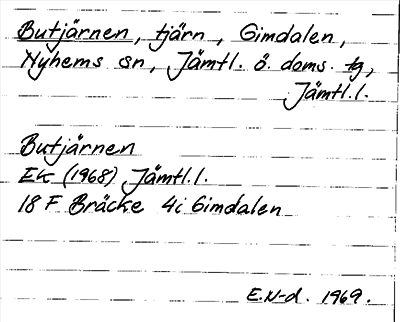 Butjärnen, tjärn, Gimdalen,
Nyhems sn, Jämtl. ö. doms. tg,
Jämtl.l.
Butjärnen
Ek (1968) Jämtl.l.
18 F Bräcke 4i Gimdalen
E.N-d. 1969.